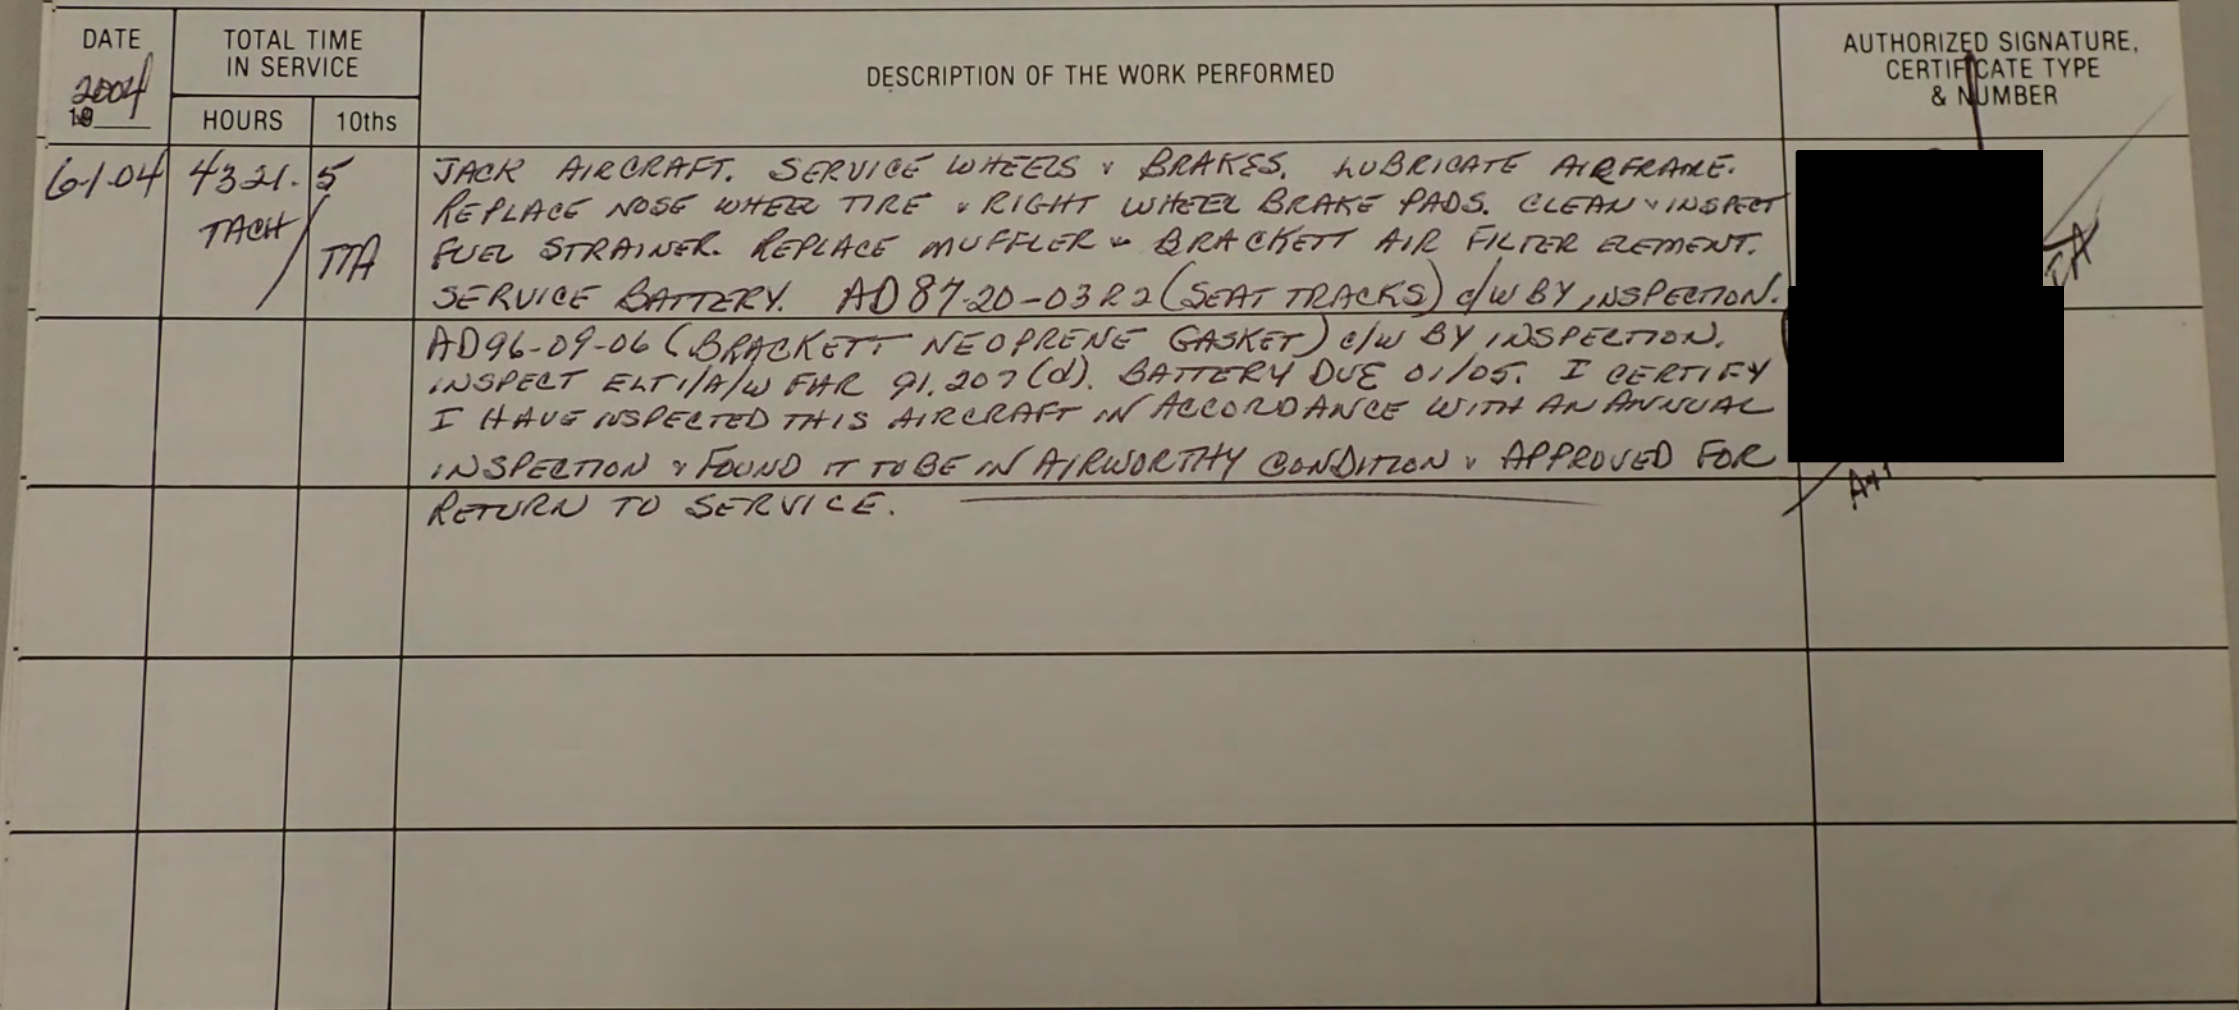 DATE
2004
19
TOTAL TIME
IN SERVICE
HOURS
10ths
DESCRIPTION OF THE WORK PERFORMED
AUTHORIZED SIGNATURE,
CERTIFICATE TYPE
& NUMBER
6-1-04
4321.5
TACH/TTA
JACK AIRCRAFT. SERVICE WHEELS & BRAKES. LUBRICATE AIRFRAME.
REPLACE NOSE WHEEL TIRE & RIGHT WHEEL BRAKE PADS. CLEAN & INSPECT
FUEL STRAINER. REPLACE MUFFLER & BRACKETT AIR FILTER ELEMENT.
SERVICE BATTERY. AD 87-20-03R2 (SEAT TRACKS) c/w BY INSPECTION.
AD96-09-06 (BRACKETT NEOPRENE GASKET) c/w BY INSPECTION.
INSPECT ELT I/A/W FAR 91.207(d). BATTERY DUE 01/05. I CERTIFY
I HAVE INSPECTED THIS AIRCRAFT IN ACCORDANCE WITH AN ANNUAL
INSPECTION & FOUND IT TO BE IN AIRWORTHY CONDITION & APPROVED FOR
RETURN TO SERVICE.